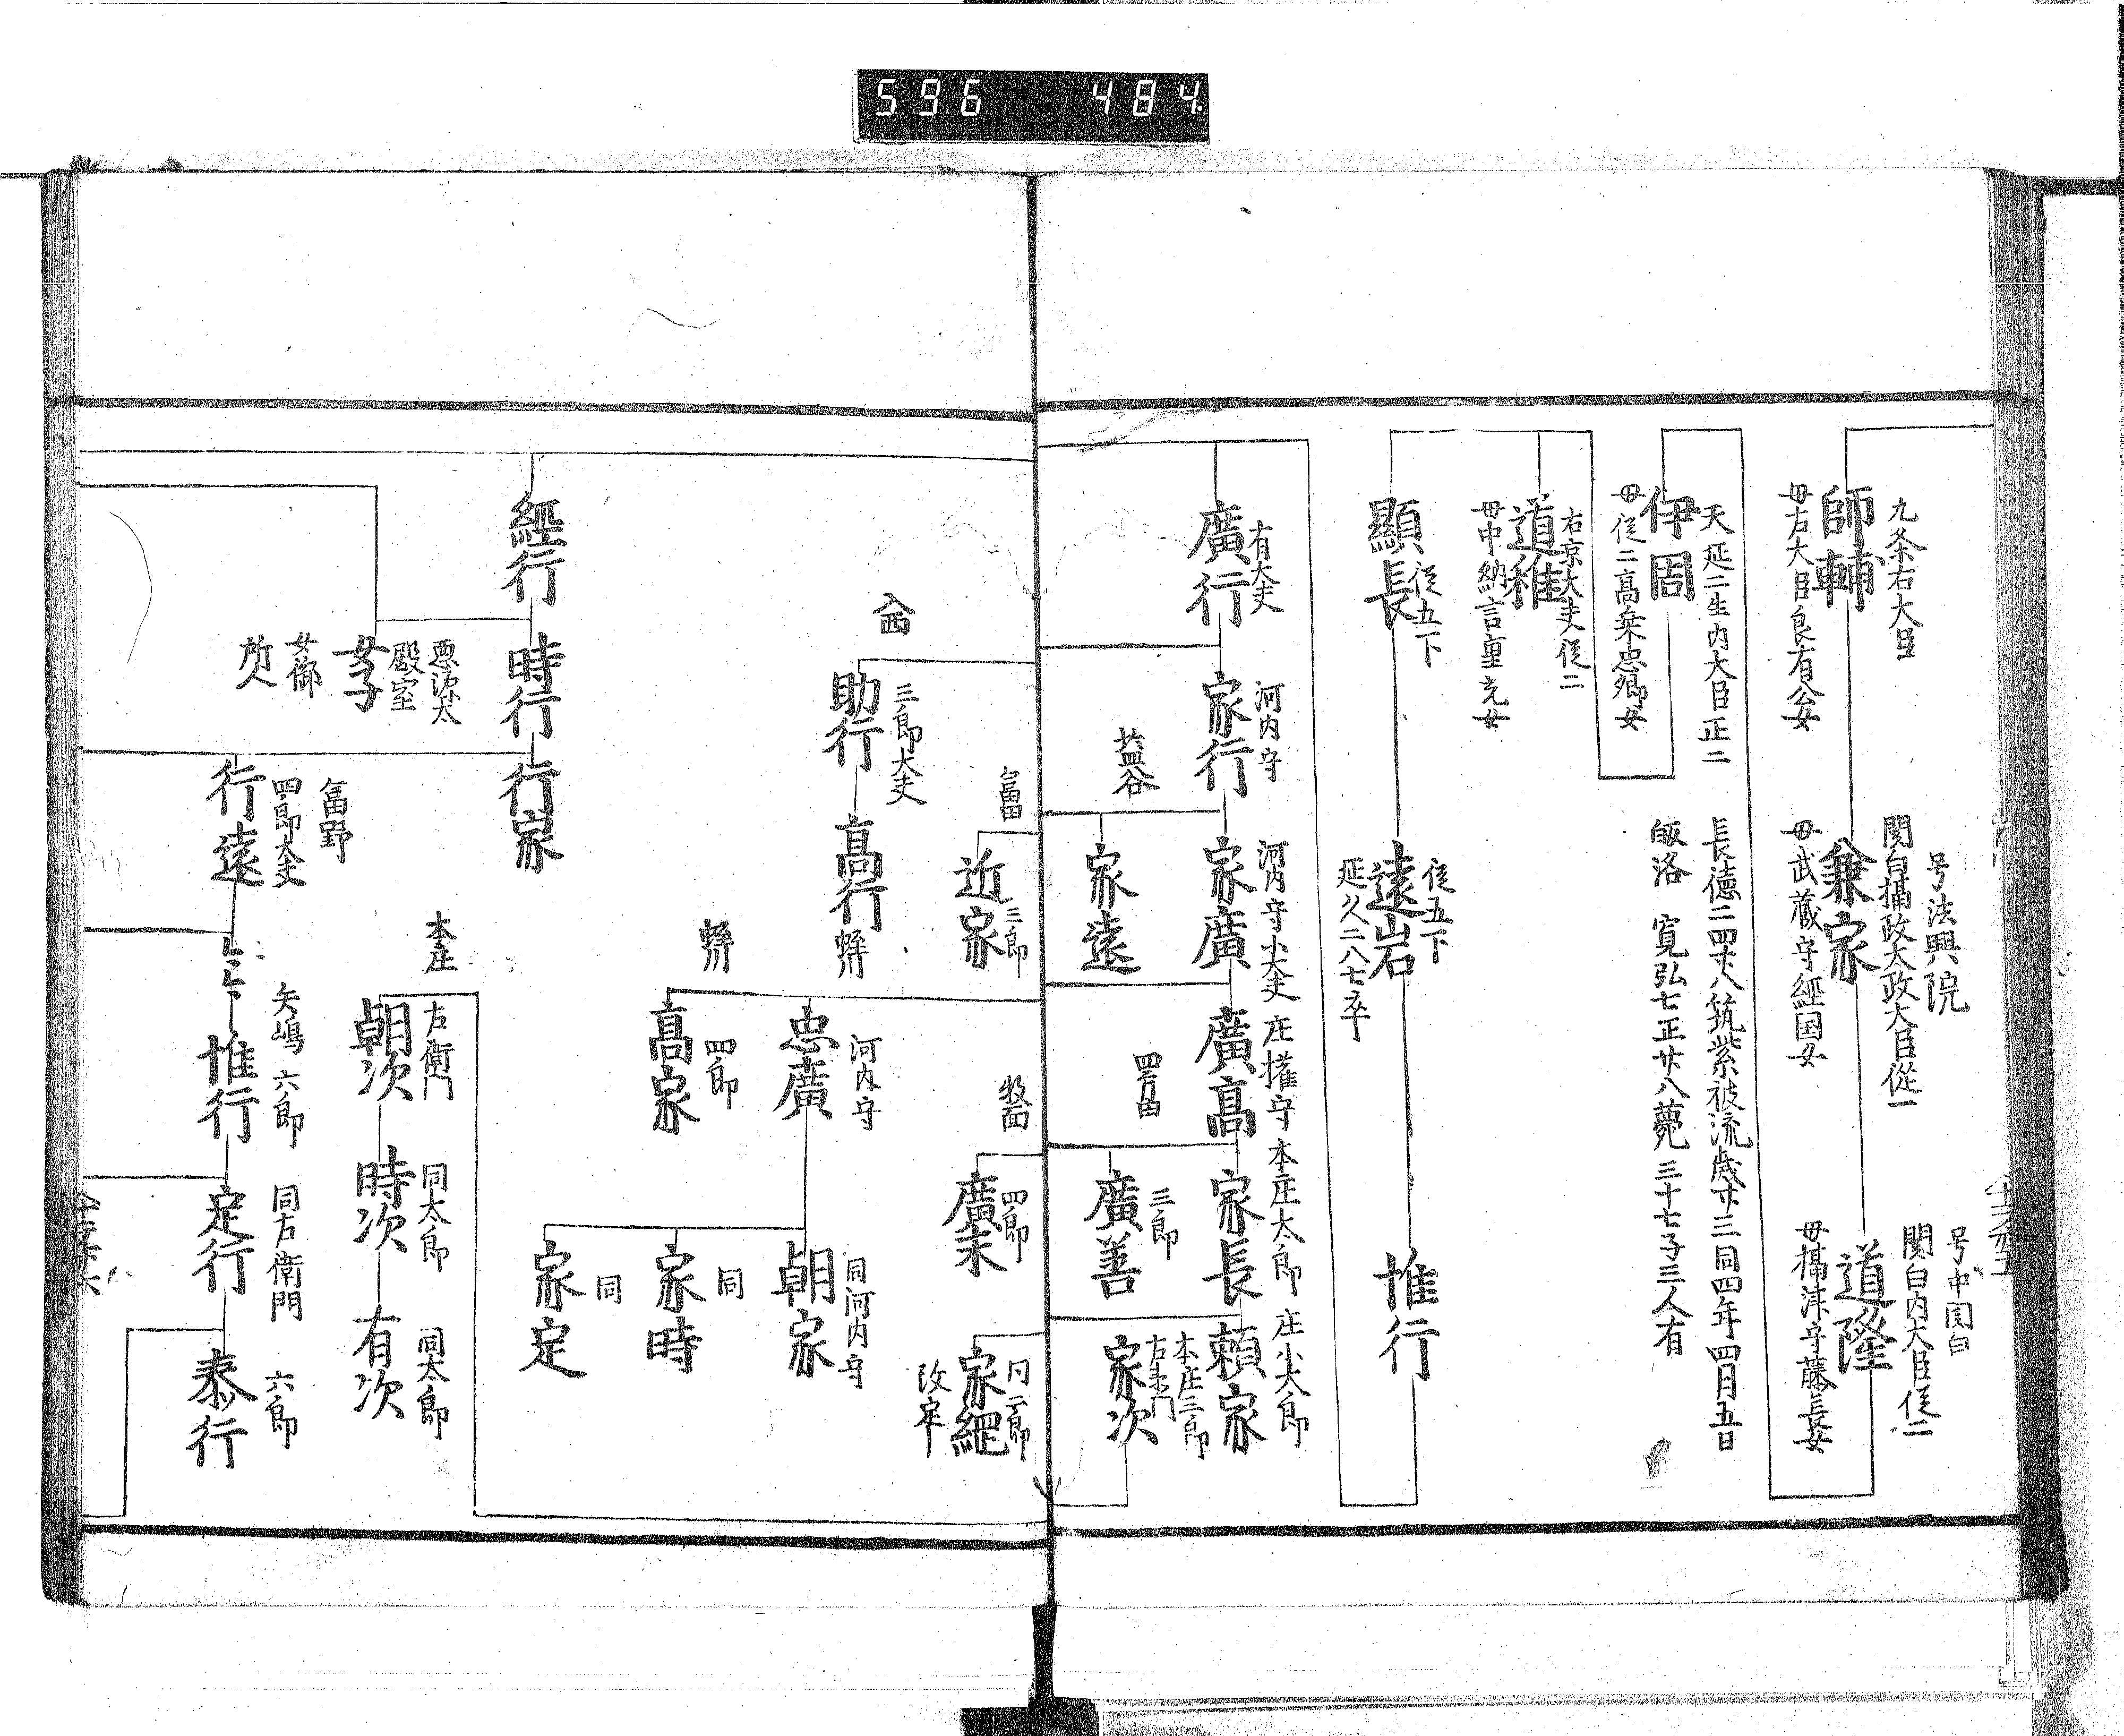 596 484
九条右大臣
師輔
毋右大臣良有公女
号法興院
関白摂政太政大臣從一
兼家
毋武蔵守經国女
号中関白
関白内大臣従二
道隆
毋摂津守藤長女
天延二生内大臣正二
伊周
毋従二高
長徳二四廿八筑紫被流歳廿三同四年四月五日
皈洛 寛弘七正廿八薨 三十七子三人有
右京大夫従二
道雅
毋中納言重光女
顯長
従五下
従五下
遠岩
延久二八七卒
惟行
有大夫
廣行
河内守
家行
河内守小大夫
家廣
庄權守
廣高
本庄太郎
家長
庄小太郎
頼家
家遠
四方田
三郎
廣善
本庄三郎
家次
三郎
近家
牧西
四郎
廣末
同二郎
家綱
改定
入西
三郎大夫
助行
高行
河内守
忠廣
同河内守
朝家
四郎
高家
同
家時
同
家定
經行
時行
行家
悪源太
殿室
女子
女御
本庄
右衛門
朝次
同太郎
時次
同太郎
有次
冨野
四郎大夫
行遠
矢嶋六郎
惟行
同右衛門
定行
六郎
泰行